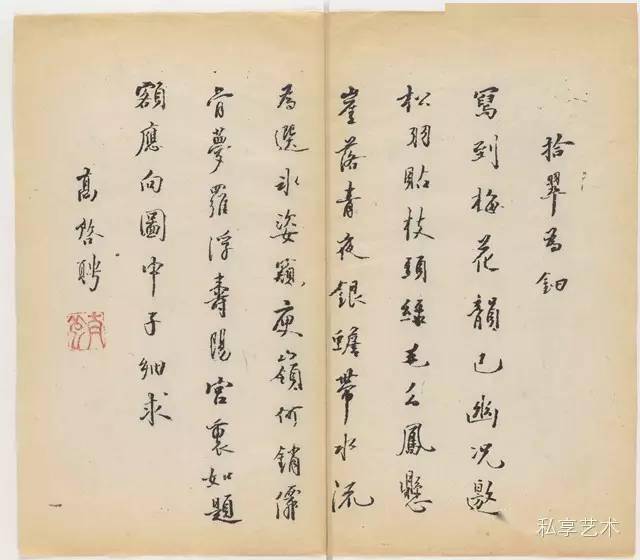 拾翠為鈿
寫到梅花韻已幽况邀
松羽貼枝頭綠毛么鳳懸
崖落青夜銀蟾帶水流
為選冰姿窺庾嶺何銷
骨夢羅浮壽陽宮裏如題
額應向圖中子細求
高啓聘
私享艺术